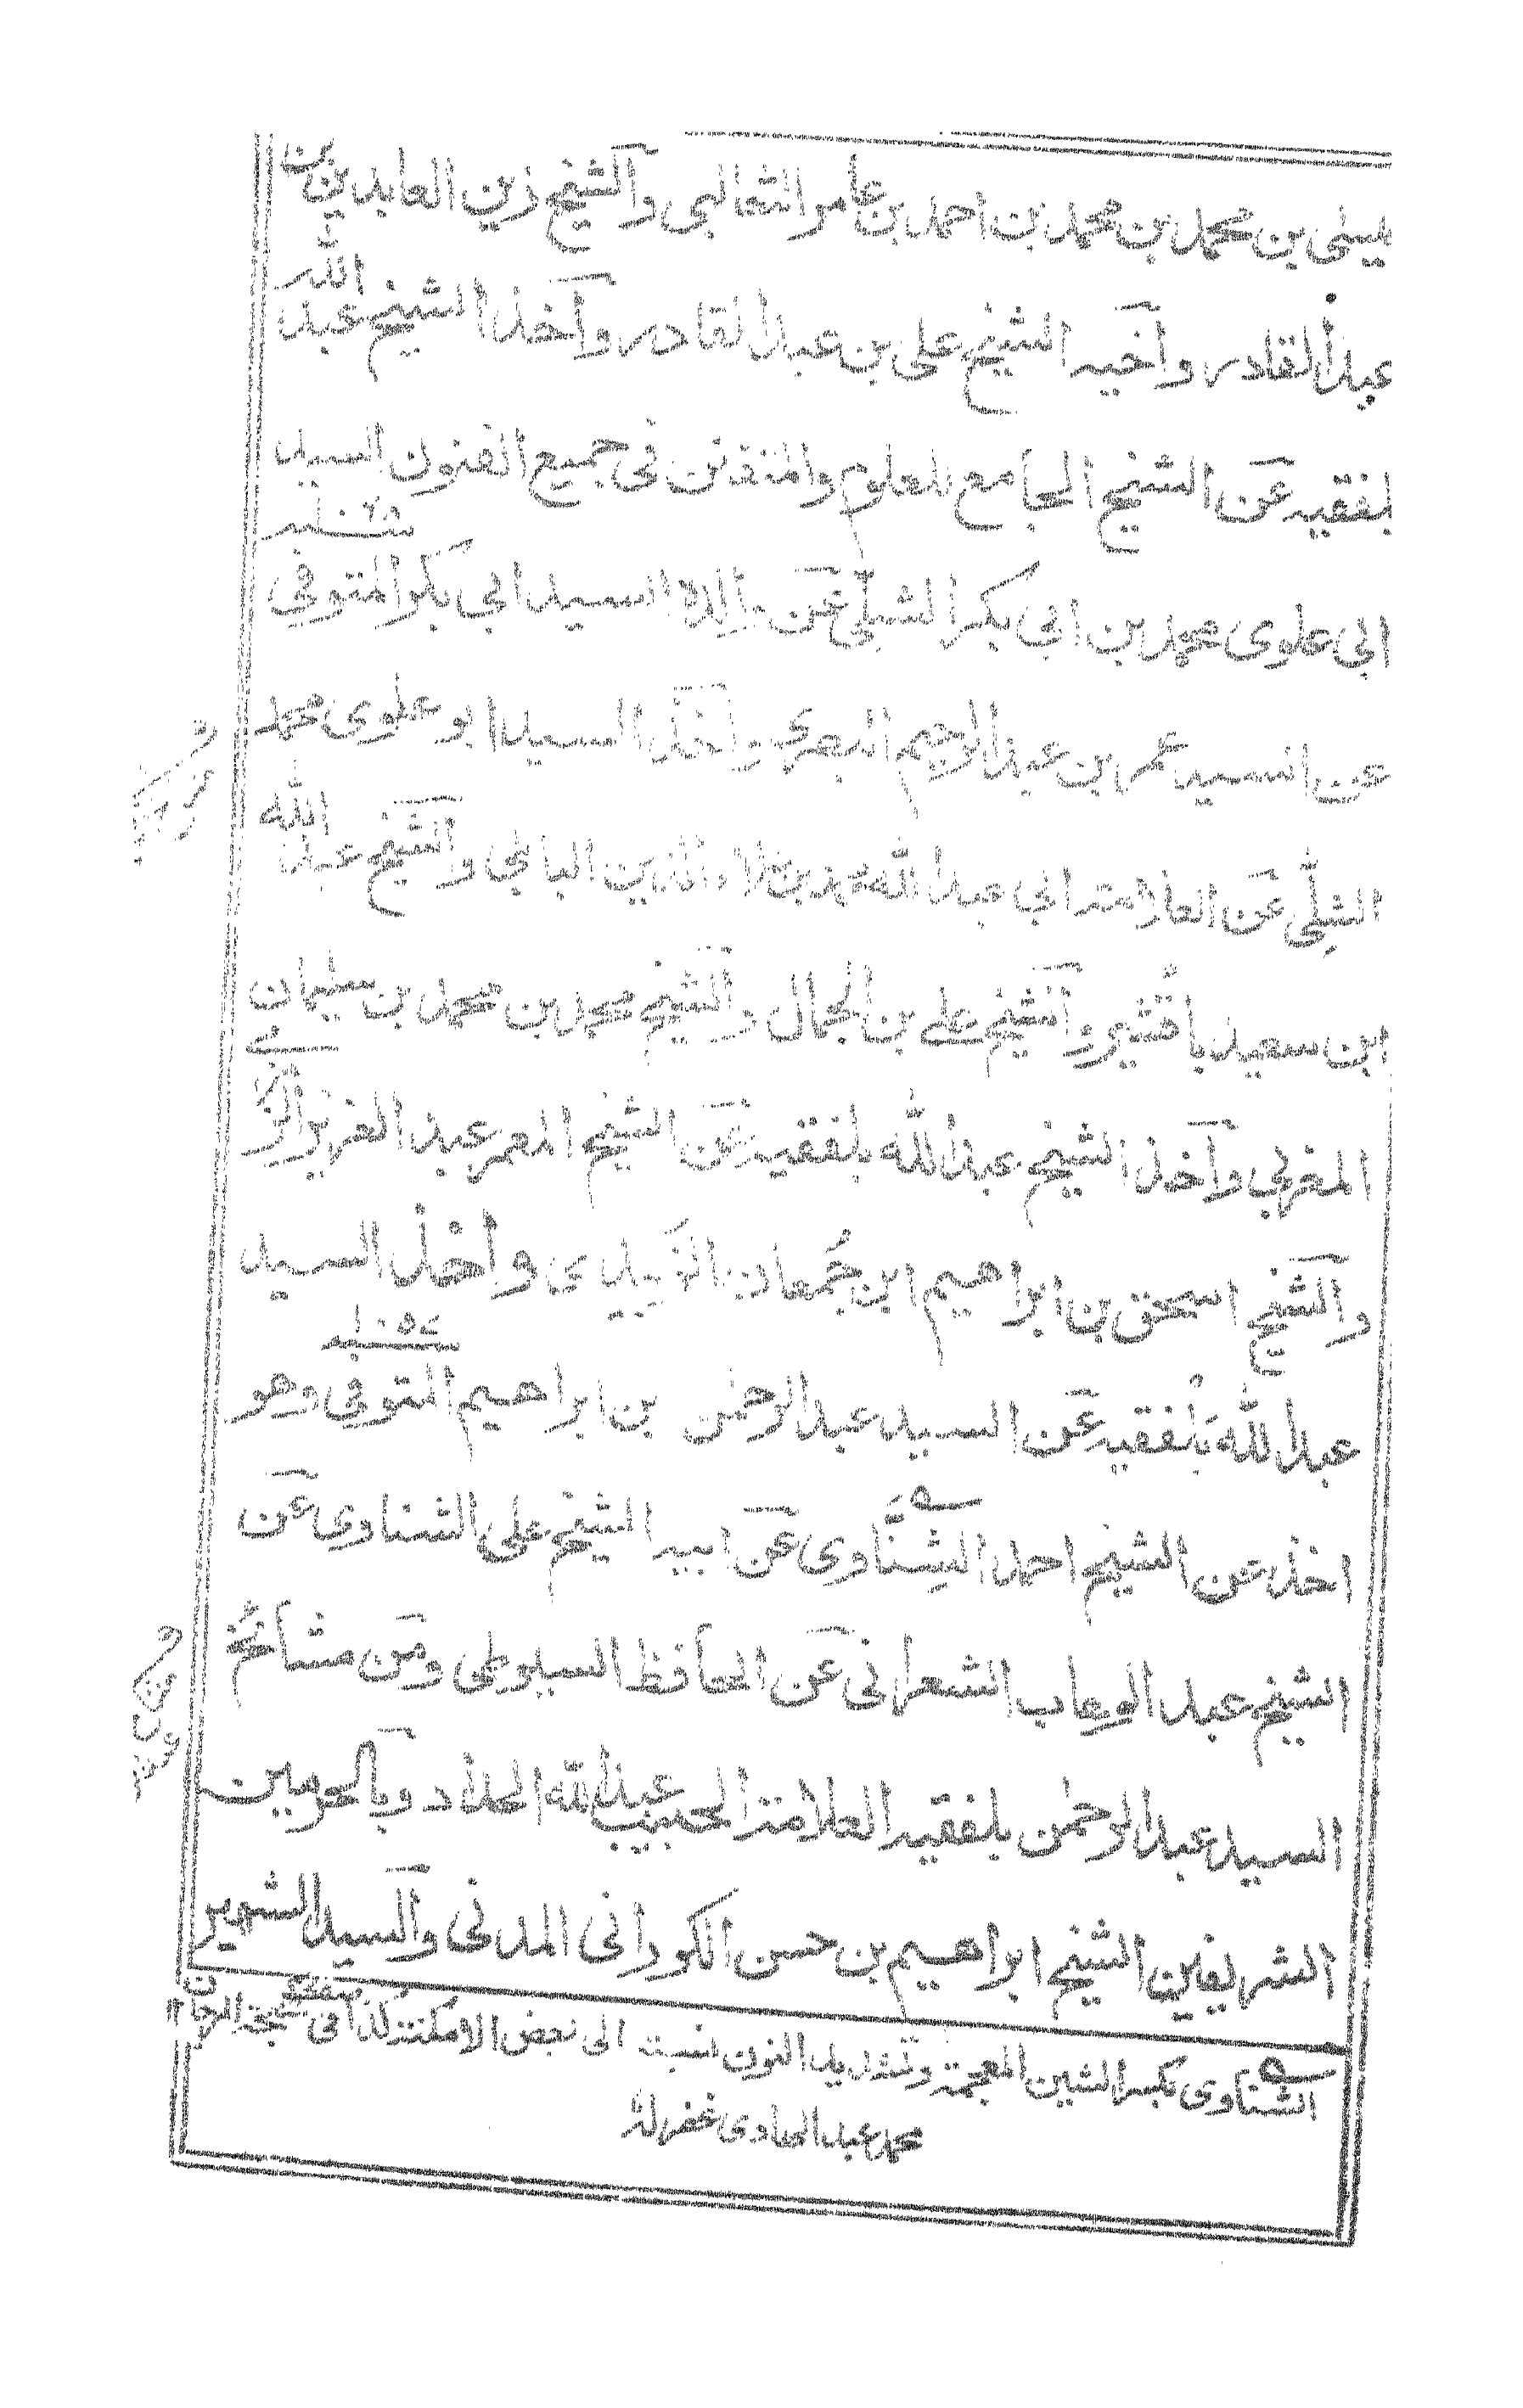 عيسى بن محمد بن محمد بن احمد بن عامر الثعالبي والشيخ زين العابدين بن
عبد القادر وأخيه الشيخ علي بن عبد القادر وأخذ الشيخ عبد الله
بلفقيه عن الشيخ الجامع للعلوم والمتفنن في جميع الفنون السيد
ابي علوي محمد بن ابي بكر الشلّي عن والده السيد ابي بكر المتوفي
عن السيد عمر بن عبد الرحيم البصري وأخذ السيد ابو علوي محمد
الشِلّي عن العلامة ابي عبد الله محمد بن علاء الدين البابلي والشيخ عبد الله
ابن سعيد باقشير والشيخ علي بن الجمال والشيخ محمد بن محمد بن سليمان
المغربي وأخذ الشيخ عبد الله بلفقيه عن الشيخ المعمر عبد العزيز الزمزمي
والشيخ اسحق بن ابراهيم ابن جُمعان الزَّبيدي وأخذ السيد
عبد الله بَلفقيه عن السيد عبد الرحمٰن بن ابراهيم المتوفي وهو
اخذ عن الشيخ احمد الشِنَّاوي عن ابيه الشيخ علي الشناوي عن
الشيخ عبد الوهاب الشعراني عن الحافظ السيوطي ومن مشائخ
السيد عبد الرحمٰن بلفقيه العلامة الحبيب عبد الله الحداد وبالحرمين
الشريفين الشيخ ابراهيم بن حسن الكوراني المدني والسيد الشهير
الشناوي بكسر الشين المعجمة وتشديد النون نسبة الى بعض الامكنة كذا في سبحة المرجان
محمد عبد الهادي غفر له